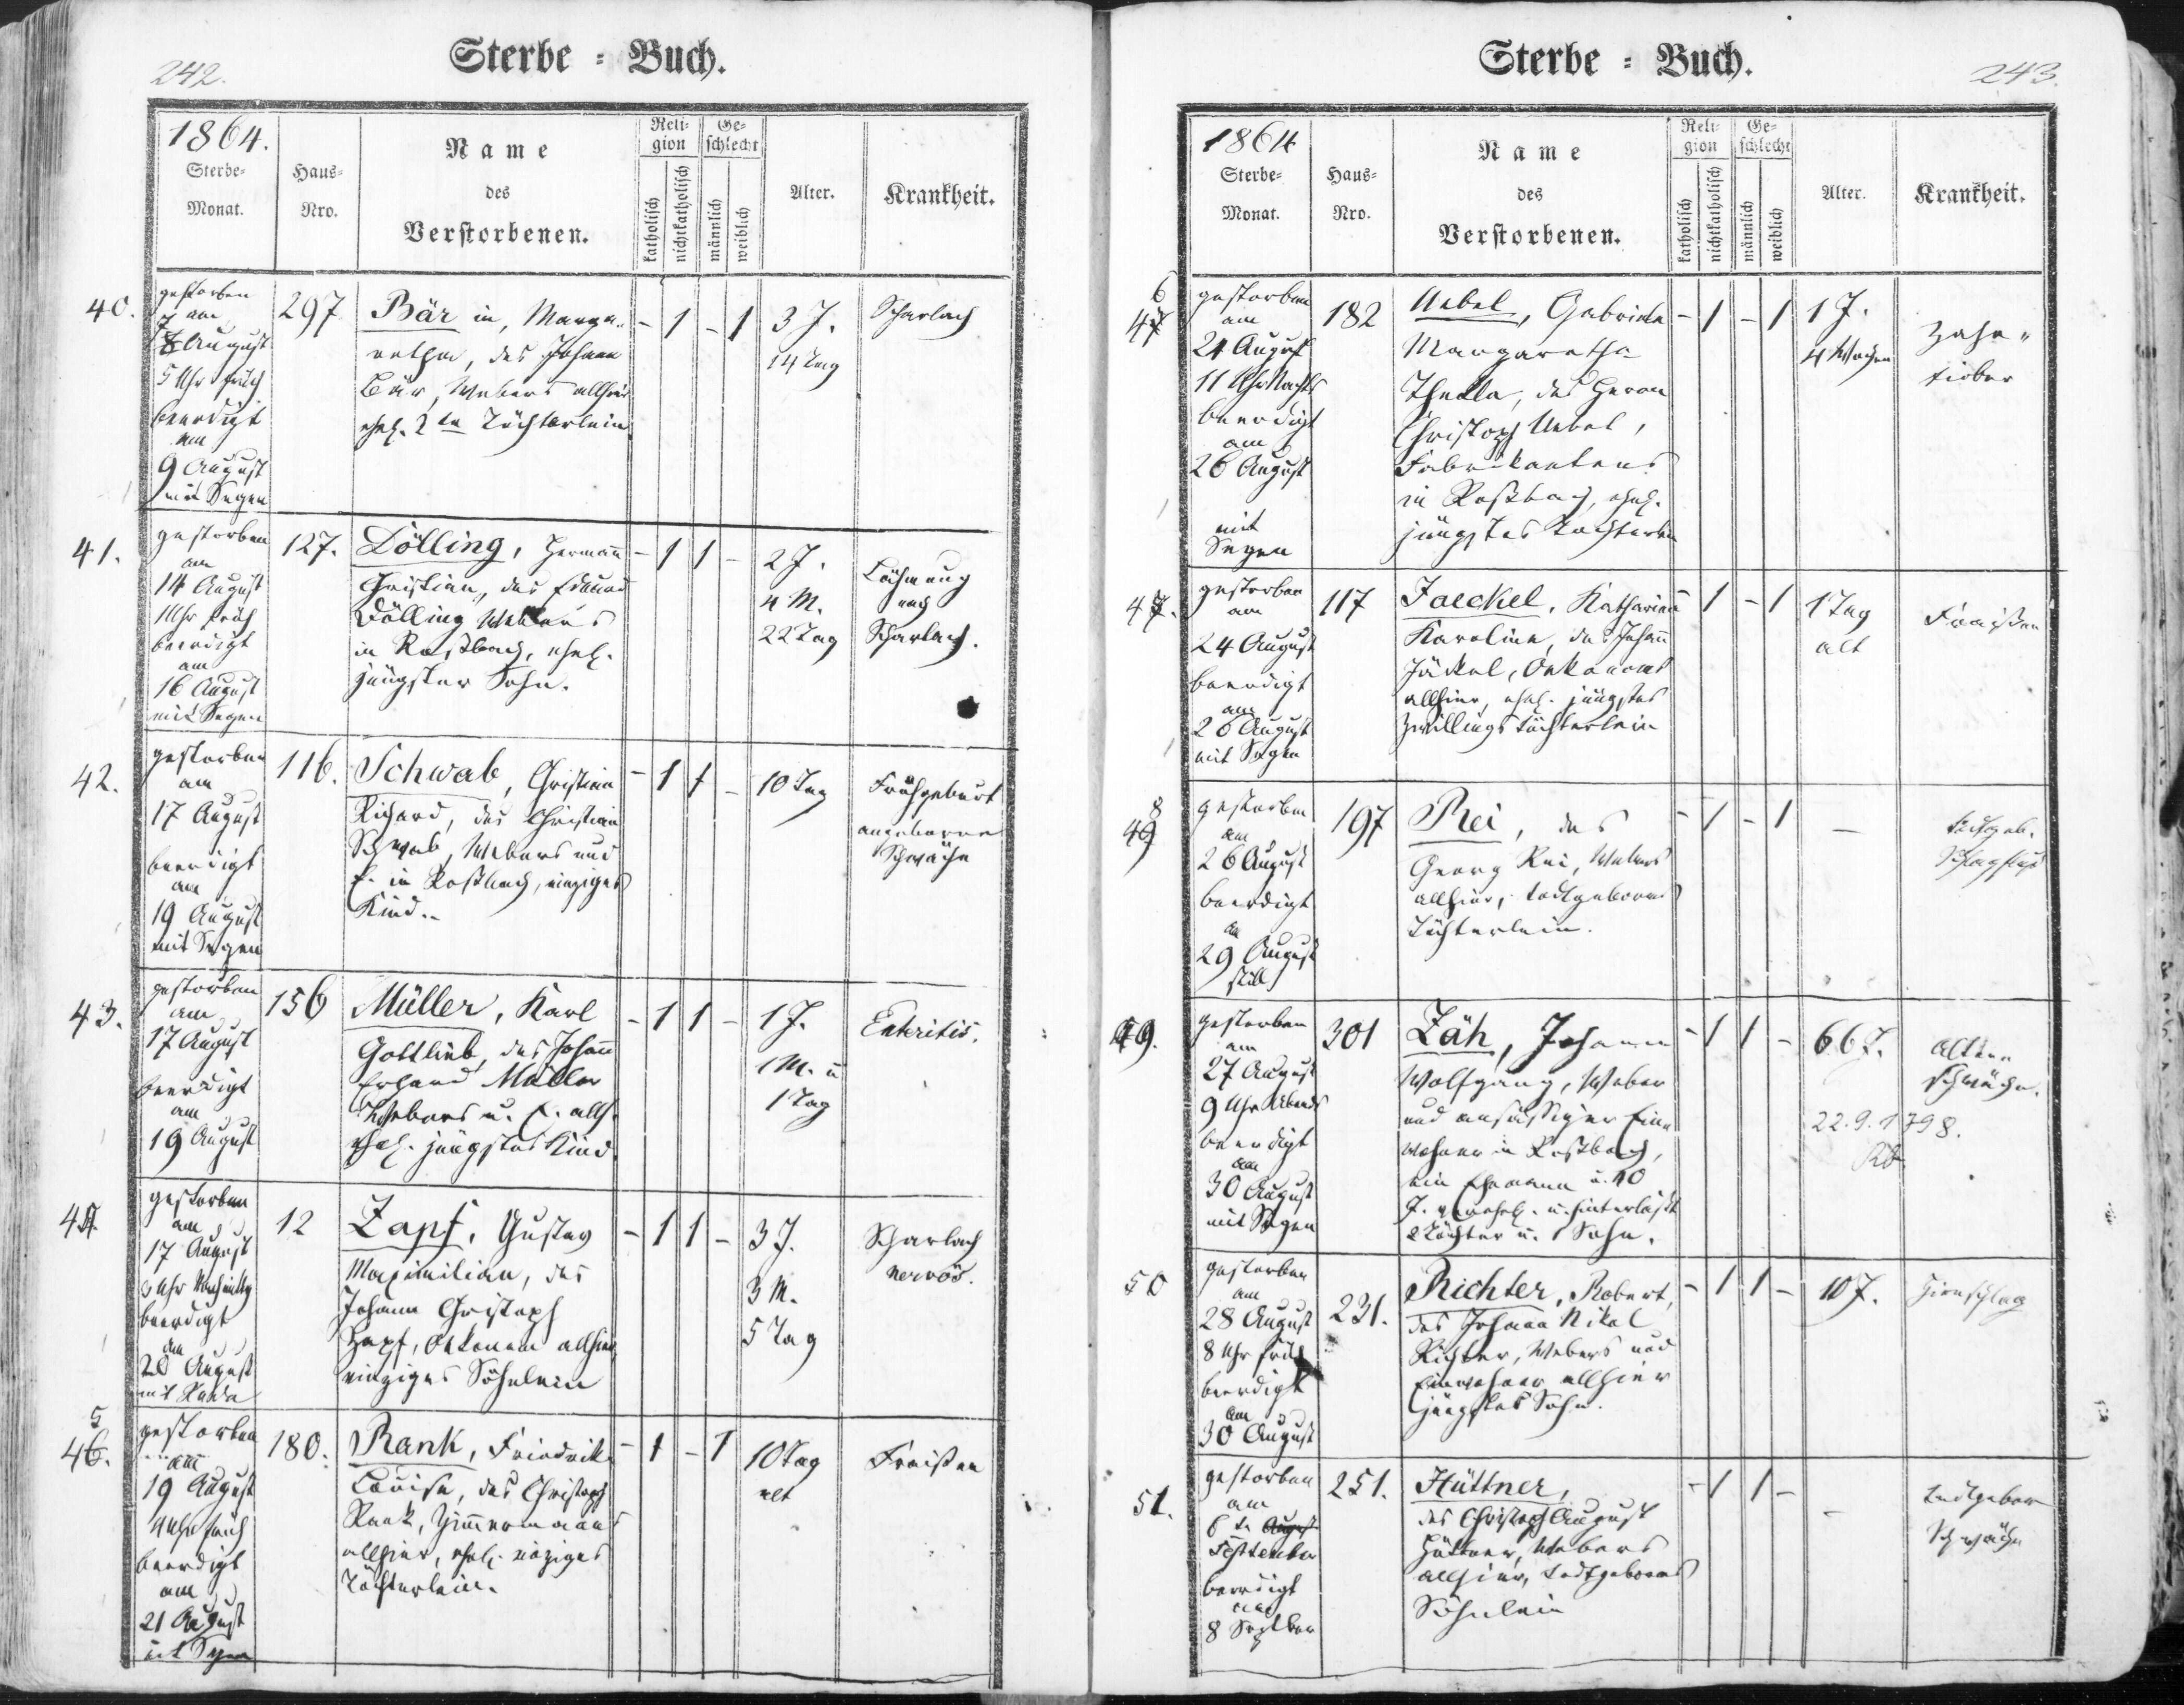 242.
Sterbe = Buch.
1864.
Sterbe-
Monat.
Haus-
Nro.
Name
des
Verstorbenen.
Reli-
gion
katholisch
nichtkatholisch
Ge-
schlecht
männlich
weiblich
Alter.
Krankheit.
40.
gestorben
am
7
8 August
5 Uhr früh
beerdigt
am
9 August
mit Segen
297
Bär in, Marga-
retha, des Johann
Bär, Webers allhier
ehel. 2te Töchterlein
- 1 - 1
3 J.
14 Tag
Scharlach
41.
gestorben
am
14 August
1 Uhr früh
beerdigt
am
16 August
mit Segen
127.
Dölling, Hermann
Christian, des Eduard
Dölling Webers
in Roßbach, ehel.
jüngster Sohn.
- 1 1 -
2 J.
4 M.
22 Tag
Lähmung
nach
Scharlach.
42.
gestorben
am
17 August
beerdigt
am
19 August
mit Segen
116.
Schwab, Christian
Richard, des Christian
Schwab, Webers und
E. in Roßbach, einziges
Kind.
- 1 1 -
10 Tag
Frühgeburt
angeborne
Schwäche
43.
gestorben
am
17 August
beerdigt
am
19 August
156
Müller, Karl
Gottlieb, des Johann
Erhard Müller
Webers u. E. allh.
ehel. jüngstes Kind.
- 1 1 -
1 J.
1 M. u
1 Tag
Enteritis.
44.
gestorben
am
17 August
3 Uhr Nachmittg
beerdigt
am
20 August
mit
12
Zapf, Gustav
Maximilian, des
Johann Christoph
Zapf, Oekonom allhier,
einziges Söhnlein
- 1 1 -
3 J.
3 M.
5 Tag
Scharlach
nervös.
5
46.
gestorben
am
19 August
4 Uhr früh
beerdigt
am
21 August
mit Segen
180.
Rank, Friedrike
Louise, des Christoph
Rank, Zimmermanns
allhier, ehel. einziges
Töchterlein.
- 1 - 1
10 Tag
alt
Fraisen
Sterbe = Buch.
243.
1864
Sterbe-
Monat.
Haus-
Nro.
Name
des
Verstorbenen.
Reli-
gion
katholisch
nichtkatholisch
Ge-
schlecht
männlich
weiblich
Alter.
Krankheit.
6
47
gestorben
am
24 August
11 Uhr Nachts
beerdigt
am
26 August
mit
Segen
182
Uebel, Gabriele
Margaretha
Thekla, des Herrn
Christoph Uebel,
Fabrikantens
in Roßbach, ehel.
jüngstes Töchterlein
- 1 - 1
1 J.
4 Wochen
Zahn-
fieber
47.
gestorben
am
24 August
beerdigt
am
26 August
mit Segen
117
Jaeckel, Katharina
Karoline, des Johann
Jäckel, Oekonoms
allhier, ehel. jüngstes
Zwillings Töchterlein
1 - 1
1 Tag
alt
Fraißen
8
49
gestorben
am
26 August
beerdigt
am
29 August
still
197
Rei, des
Georg Rei, Webers
allhier, todtgebornes
Töchterlein.
- 1 - 1
-
todtgeb.
Schlagfluß
49.
gestorben
am
27 August
9 Uhr Abends
beerdigt
am
30 August
mit Segen
301
Zäh, Johann
Wolfgang, Weber
und ansässiger Ein-
wohner in Roßbach,
ein Ehemann u. 40
J. verehel. u. hinterläßt
2 Töchter u. 1 Sohn.
- 1 1 -
66 J.
22.9.1798.
Alters
schwäche.
50
gestorben
am
28 August
8 Uhr früh
beerdigt
am
30 August
231.
Richter, Robert,
des Johann Nikol
Richter, Webers und
Einwohner allhier
jüngster Sohn.
- 1 1 -
10 J.
Hirnschlag
51.
gestorben
am
6 te August
September
beerdigt
am
8 September
251.
Hüttner,
des Christoph August
Hüttner, Webers
allhier, todtgebornes
Söhnlein
- 1 1 -
-
todtgebor
Schwäche